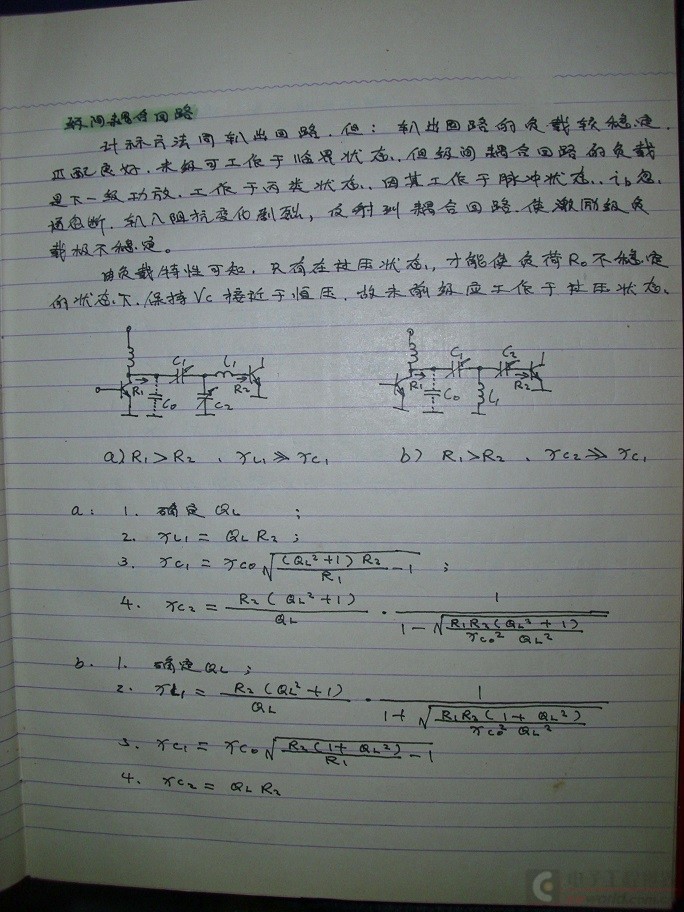 级间耦合回路
计标方法同轧出回路.但:轧出回路的负载较稳定.
匹配良好.末级可工作于临界状态..但级间耦合回路的负载
是下一级功放.工作于丙类状态..因其工作于脉冲状态..ib忽.
通忽断.轧入阻抗变化剧烈,反射到耦合回路.使激励级负
载极不稳定。
由负载特性可知.只有在过压状态,才能使负荷R0不稳定
的状态下.保持Vc接近于恒压.故末前级应工作于过压状态.
C1 L1 R1 R2 C0 C2
C1 C2 R1 R2 C0 L1
a) R1 > R2 . xL1 ≫ xC1
b) R1 > R2 . xC2 ≫ xC1
a: 1. 确定 QL ;
2. xL1 = QL R2 ;
3. xC1 = xC0 √((QL²+1) R2 / R1 − 1) ;
4. xC2 = R2 (QL²+1) / QL · 1 / (1 − √(R1R2(QL²+1) / xC0² QL²))
b. 1. 确定QL ;
2. xL1 = R2 (QL²+1) / QL · 1 / (1 + √(R1R2(1+QL²) / xC0² QL²))
3. xC1 = xC0 √(R2(1+QL²) / R1 − 1)
4. xC2 = QL R2
电子工程世界
eeworld.com.cn